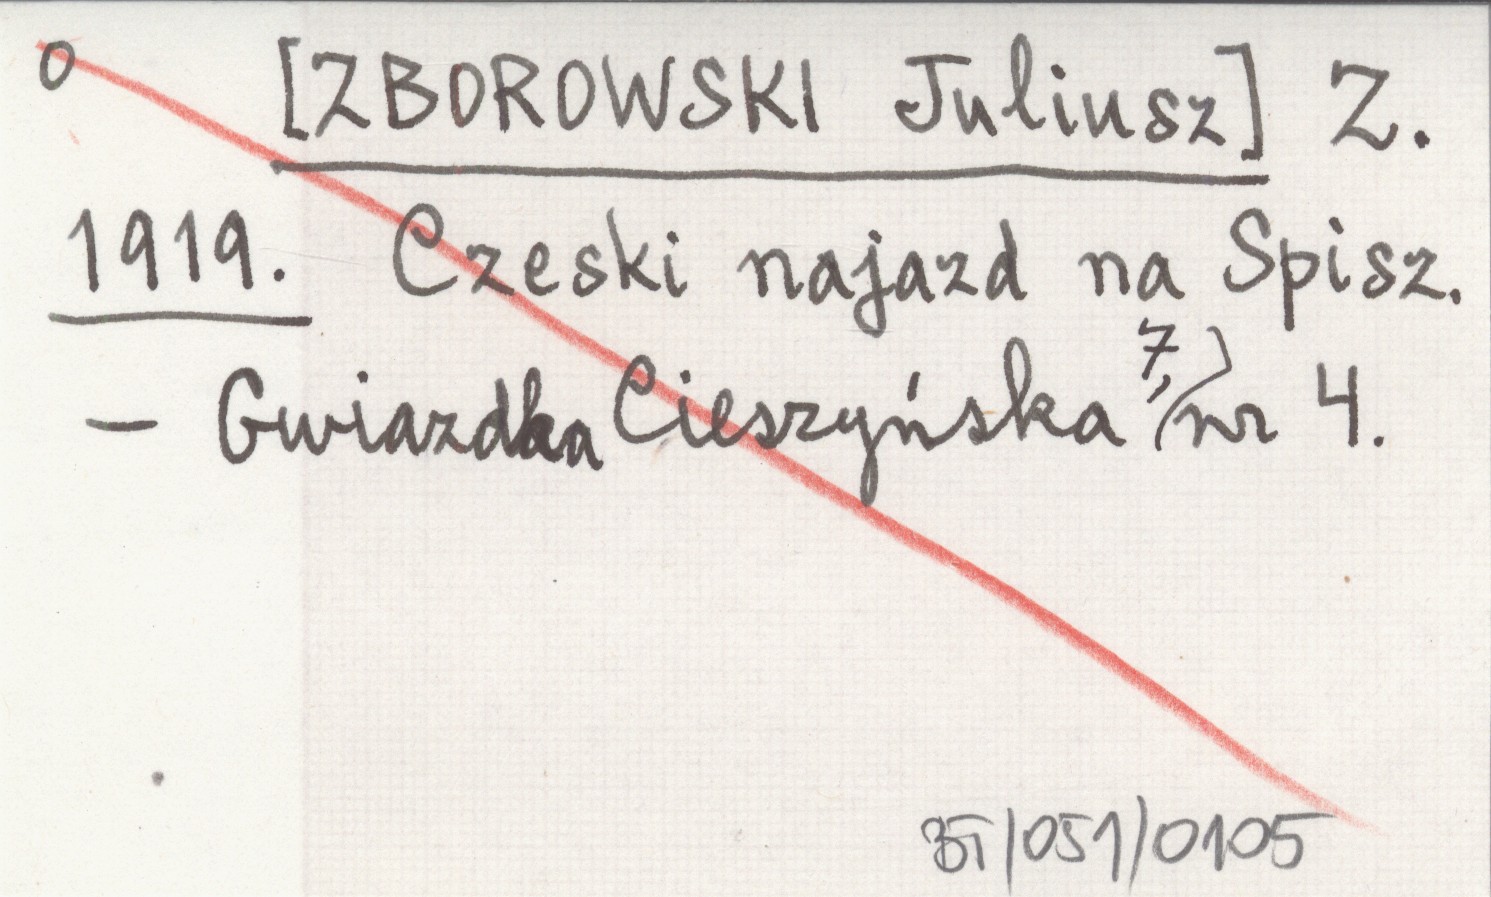 o [ZBOROWSKI Juliusz] Z.
1919. Czeski najazd na Spisz.
– Gwiazdka Cieszyńska 7, nr 4.
BT/051/0105